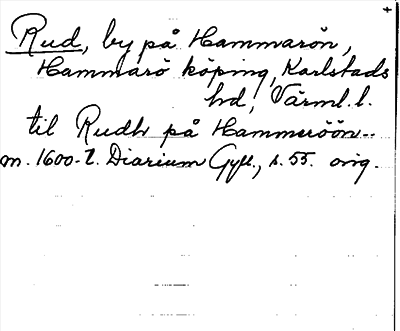 Rud, by på Hammarön,
Hammarö köping, Karlstads
hd, Värml. l.
til Rudh på Hammeröön--
m. 1600-t. Diarium Gyll., s. 55. orig.